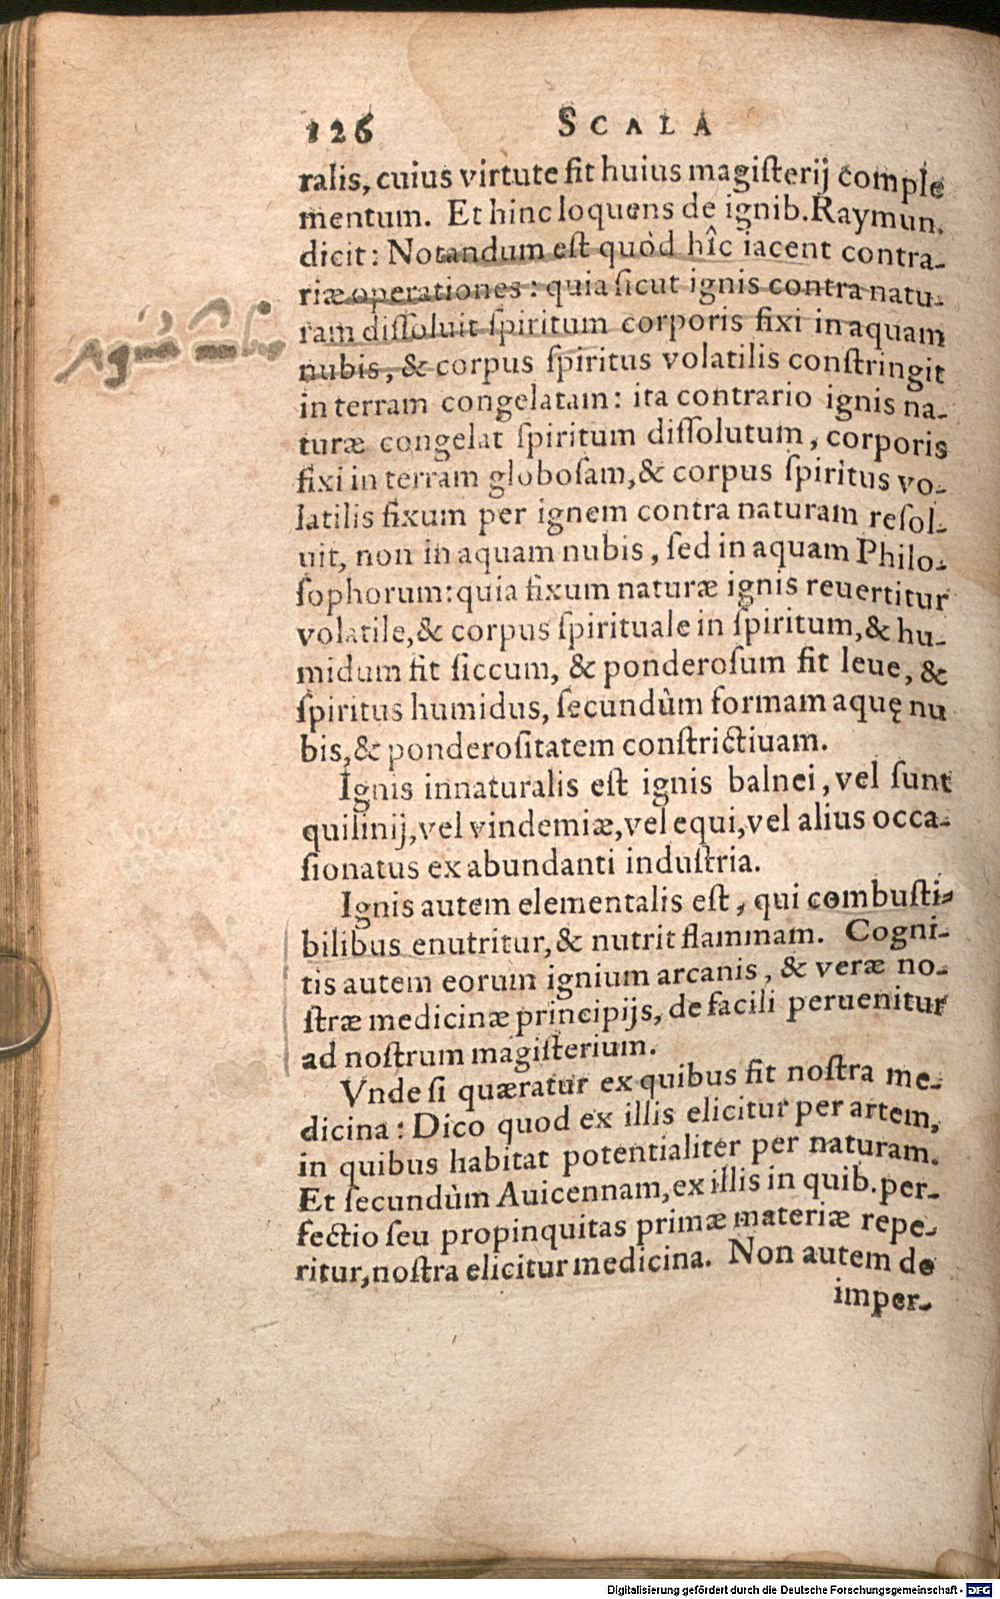 126 SCALA
ralis, cuius virtute fit huius magiſterij comple
mentum. Et hinc loquens de ignib. Raymun.
dicit: Notandum eſt quòd hîc iacent contra-
riæ operationes: quia ſicut ignis contra natu-
ram diſſoluit ſpiritum corporis fixi in aquam
Aqua nubis
nubis, & corpus ſpiritus volatilis conſtringit
in terram congelatam: ita contrario ignis na-
turæ congelat ſpiritum diſſolutum, corporis
fixi in terram globoſam, & corpus ſpiritus vo-
latilis fixum per ignem contra naturam reſol-
uit, non in aquam nubis, ſed in aquam Philo-
ſophorum: quia fixum naturæ ignis reuertitur
volatile, & corpus ſpirituale in ſpiritum, & hu-
midum fit ſiccum, & ponderoſum fit leue, &
ſpiritus humidus, ſecundùm formam aquę nu
bis, & ponderoſitatem conſtrictiuam.
Ignis innaturalis eſt ignis balnei, vel ſunt
quilinij, vel vindemiæ, vel equi, vel alius occa-
ſionatus ex abundanti induſtria.
Ignis autem elementalis eſt, qui combuſti-
bilibus enutritur, & nutrit flammam. Cogni-
tis autem eorum ignium arcanis, & veræ no-
ſtræ medicinæ principijs, de facili peruenitur
ad noſtrum magiſterium.
Vnde ſi quæratur ex quibus fit noſtra me-
dicina: Dico quod ex illis elicitur per artem,
in quibus habitat potentialiter per naturam.
Et ſecundùm Auicennam, ex illis in quib. per-
fectio ſeu propinquitas primæ materiæ repe-
ritur, noſtra elicitur medicina. Non autem de
imper-
Digitalisierung gefördert durch die Deutsche Forschungsgemeinschaft - DFG